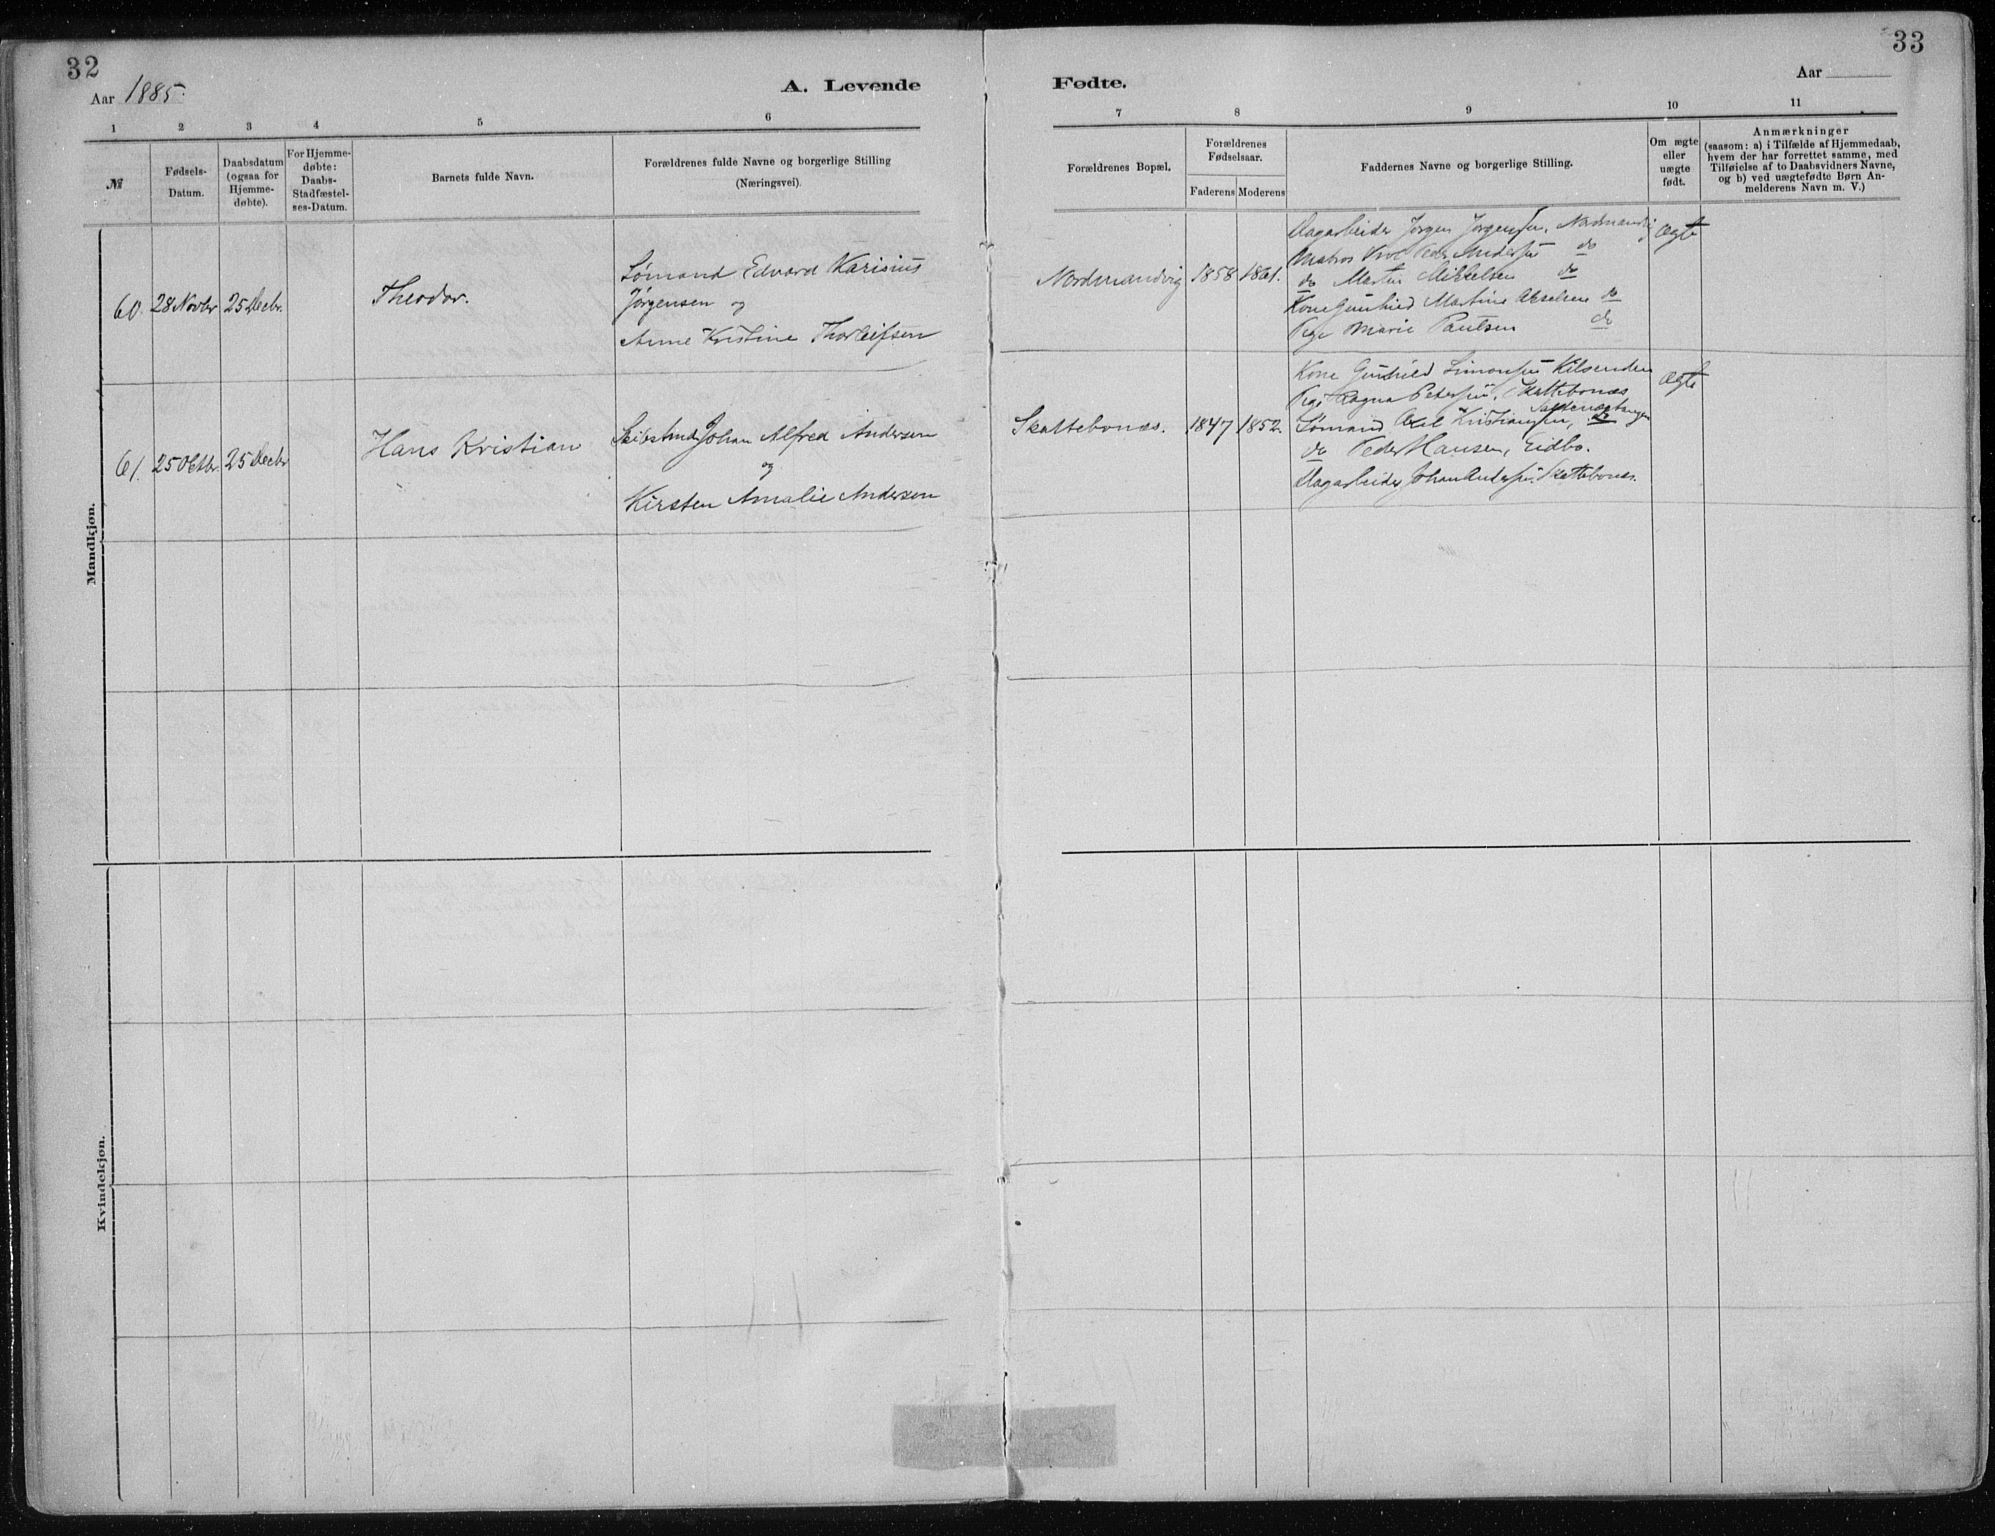 32
Aar 1885.
A. Levende
1 2 3 4 5 6
№
Fødsels-
Datum.
Daabsdatum
(ogsaa for
Hjemme-
døbte).
For Hjemme-
døbte:
Daabs-
Stadfæstel-
ses-Datum.
Barnets fulde Navn.
Forældrenes fulde Navne og borgerlige Stilling
(Næringsvei).
Mandkjøn.
60. 28 Novbr 25 Decbr. Theodor.
Sømand Edvard Karisius
Jørgensen og
Anne Kristine Thorleifsen
61. 25 Octbr. 25 Decbr Hans Kristian
Johan Alfred Andersen
og
Kirsten Amalie Andersen
Kvindekjøn.
33
Fødte.
Aar
7 8 9 10 11
Forældrenes Bopæl.
Forældrenes
Fødselsaar.
Faderens Moderens
Faddernes Navne og borgerlige Stilling.
Om ægte
eller
uægte
født.
Anmærkninger
(saasom: a) i Tilfælde af Hjemmedaab,
hvem der har forrettet samme, med
Tilføielse af to Daabsvidners Navne,
og b) ved uægtefødte Børn An-
melderens Navn m. V.)
Nordmandvig 1858 1861.
Dagarbeider Jørgen Jørgensen, Nordmandvig
Matros Peder Andersen do
do Martin Mikkelsen do
Kone Gunhild Martine Akselsen do
Pige Marie Paulsen do
Ægte
Skattebonæs. 1847 1852.
Kone Gunhild Simonsen Kilsenden
Pige Ragna Petersen, Skattebonæs
Sømand Axel Kristiansen,
do Peder Hansen, Eidbo.
Dagarbeider Johan Andersen Skattebonæs.
Ægte